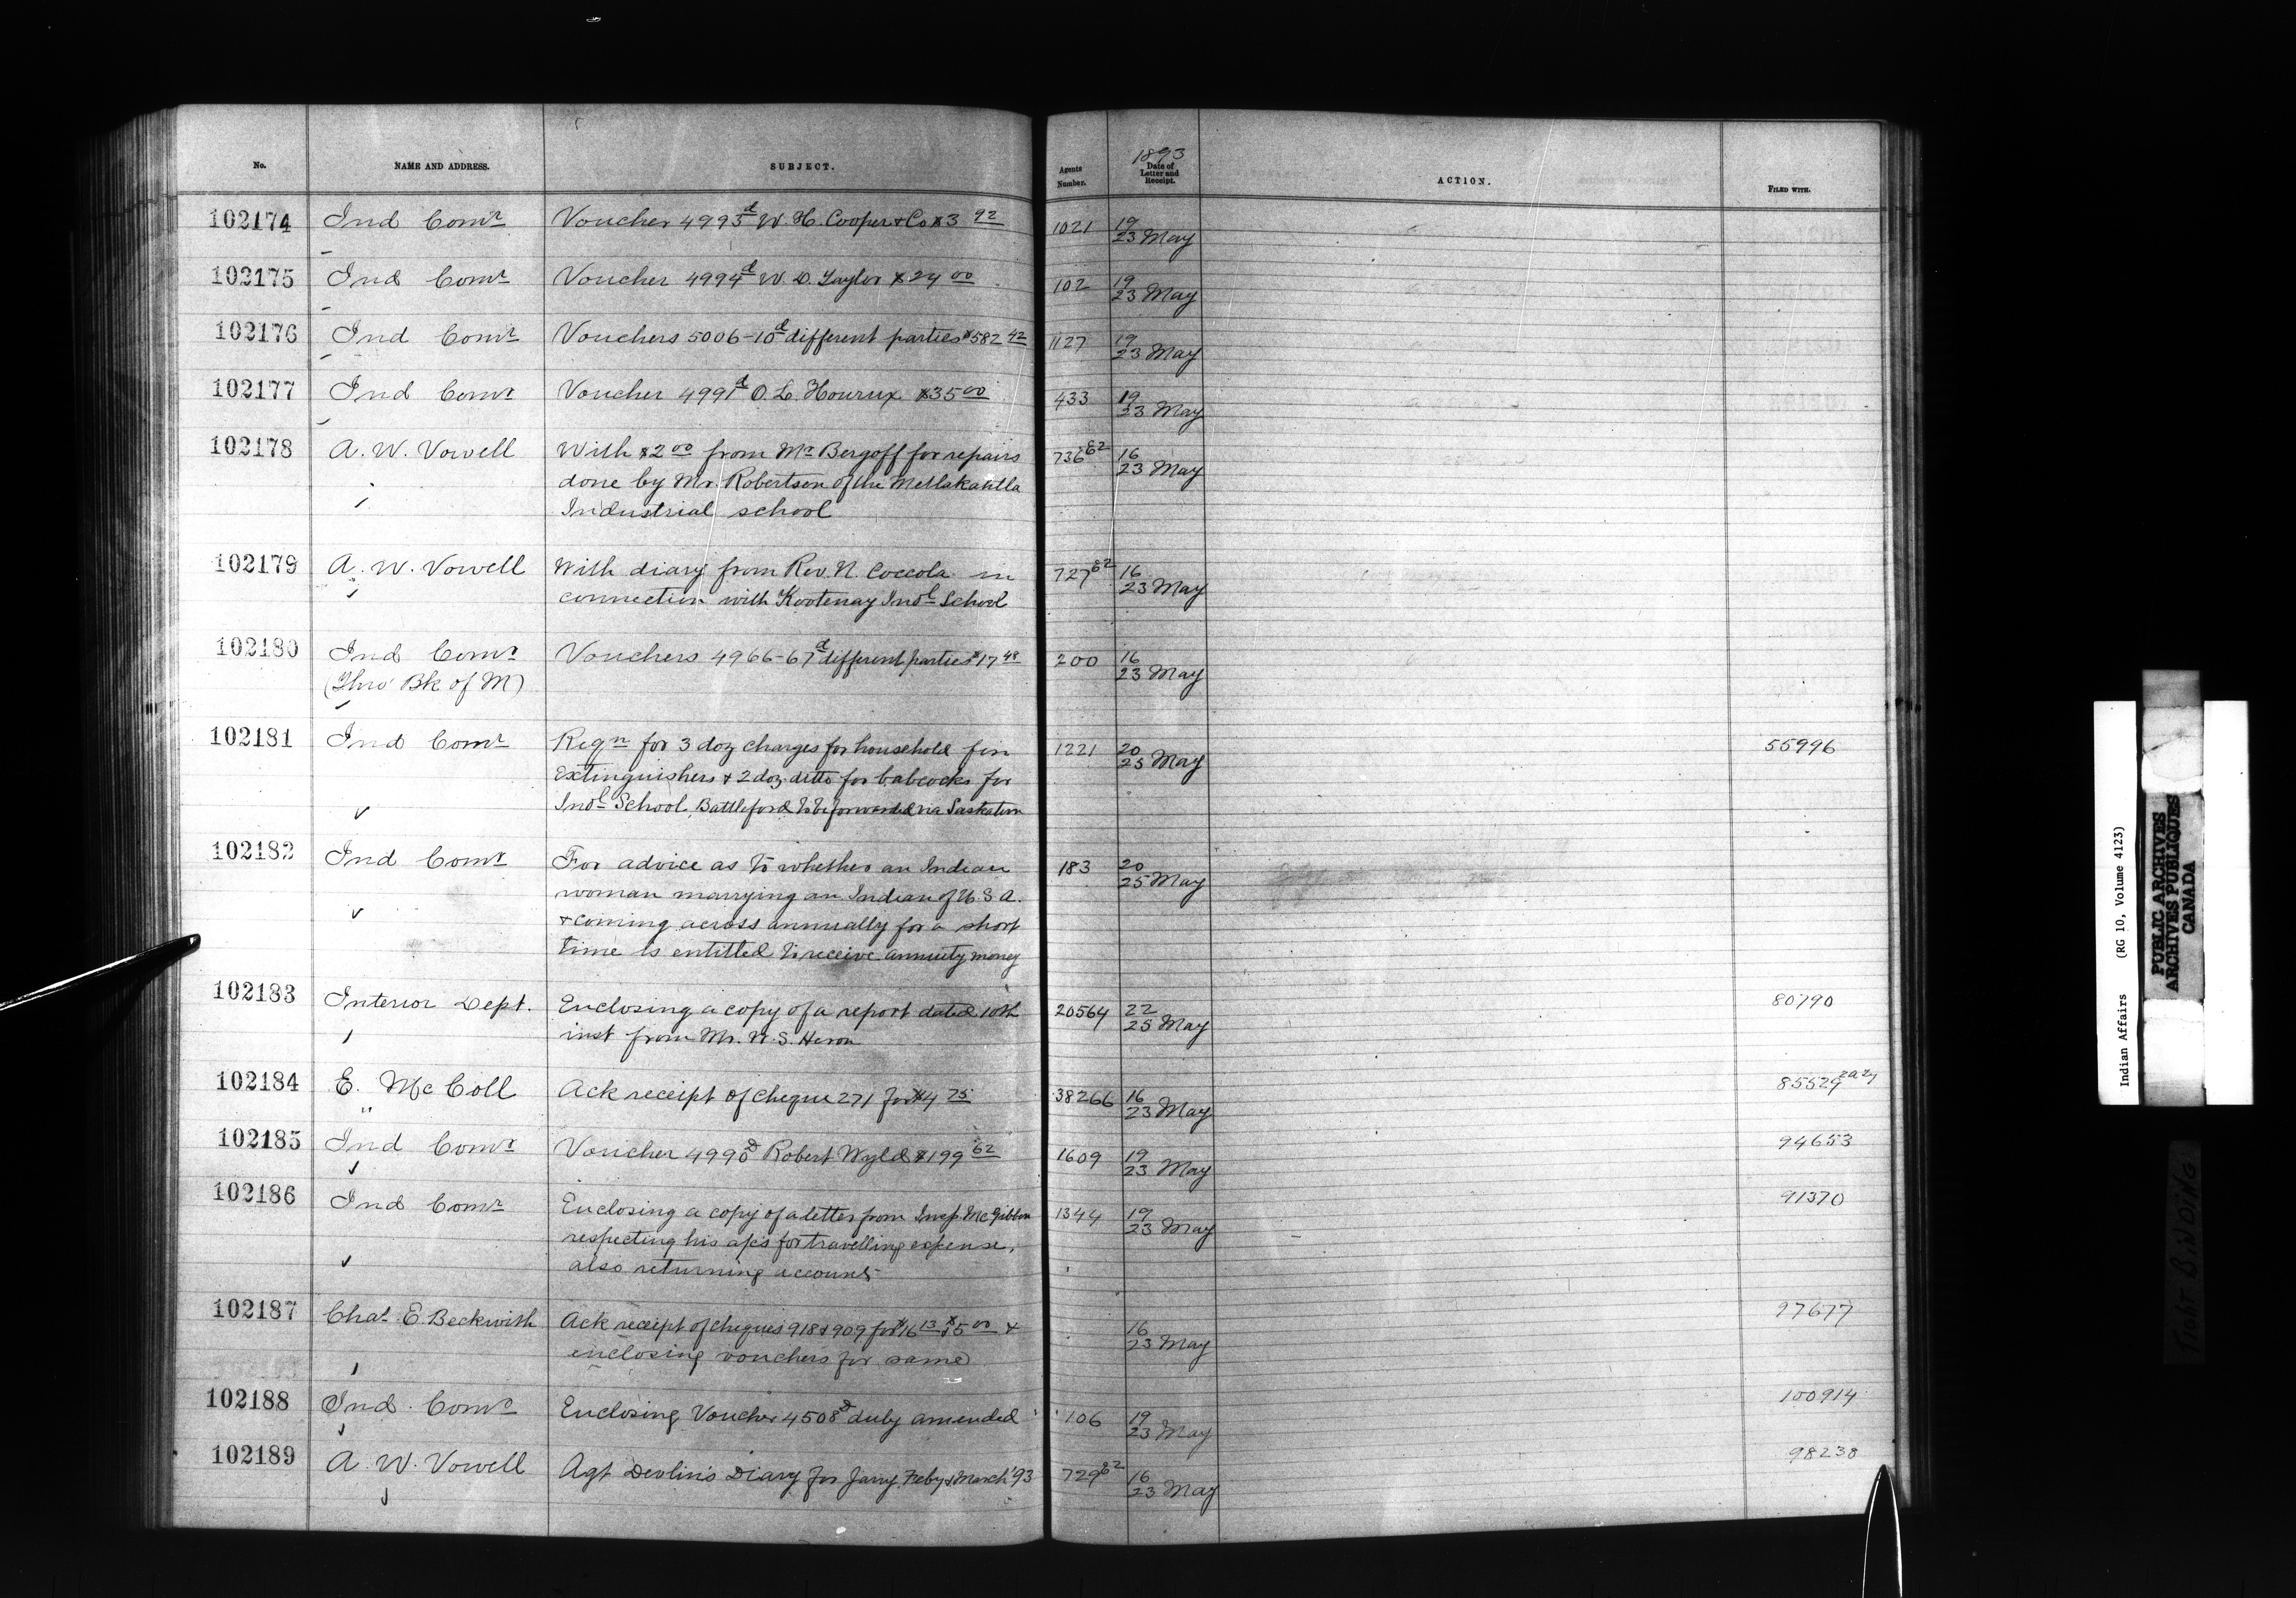 No. NAME AND ADDRESS. SUBJECT. Agents Number. 1893 Date of Letter and Receipt. ACTION. FILED WITH.
102174 Ind Comr Voucher 4995d W. H. Cooper & Co $3 92 1021 19
23 May
102175 Ind Comr Voucher 4994d W. D. Taylor $24 00 102 19
23 May
102176 Ind Comr Vouchers 5006-10d different parties $582 42 1127 19
23 May
102177 Ind Comr Voucher 4991d O. L. $35 00 433 19
23 May
102178 A. W. Vowell With $2 00 from Mr Bergoff for repairs 736 82 16
done by Mr. Robertson of the Metlakahtla 23 May
Industrial school
102179 A. W. Vowell With diary from Rev. N. Coccola in 727 82 16
connection with Kootenay Indl School 23 May
102180 Ind Comr Vouchers 4966-67d different parties $17 48 200 16
(Thro' Bk of M) 23 May
102181 Ind Comr Reqn for 3 doz charges for household fire 1221 20 55996
Extinguishers & 2 doz ditto for babcocks for 25 May
Indl School, Battleford to be forwarded via Saskatoon
102182 Ind Comr For advice as to whether an Indian 183 20
woman marrying an Indian of U.S.A. 25 May
& coming across annually for a short
time is entitled to receive annuity money
102183 Interior Dept. Enclosing a copy of a report dated 10th 20564 22 80790
inst from Mr. W. S. Heron 25 May
102184 E. McColl Ack receipt of cheque 271 for $4 75 38266 16 85529 2a 27
23 May
102185 Ind Comr Voucher 4990d Robert Wyld $199 62 1609 19 94653
23 May
102186 Ind Comr Enclosing a copy of a letter from Insp. McGibbon 1344 19 91370
respecting his a/cs for travelling expense, 23 May
also returning accounts
102187 Chas E. Beckwith Ack receipt of cheques 918 & 909 for $16 13 $5 00 & 16 97677
enclosing vouchers for same 23 May
102188 Ind. Comr Enclosing Voucher 4508d duly amended 106 19 100914
23 May
102189 A. W. Vowell Agt Devlin's Diary for Jany, Feby & March '93 729 82 16 98238
23 May
Indian Affairs (RG 10, Volume 4123)
PUBLIC ARCHIVES
ARCHIVES PUBLIQUES
CANADA
TIGHT BINDING